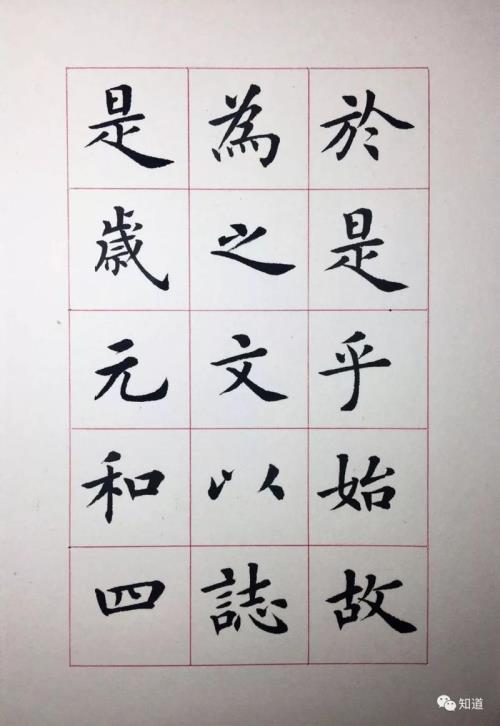 於是乎始故
為之文以誌
是歳元和四
知道